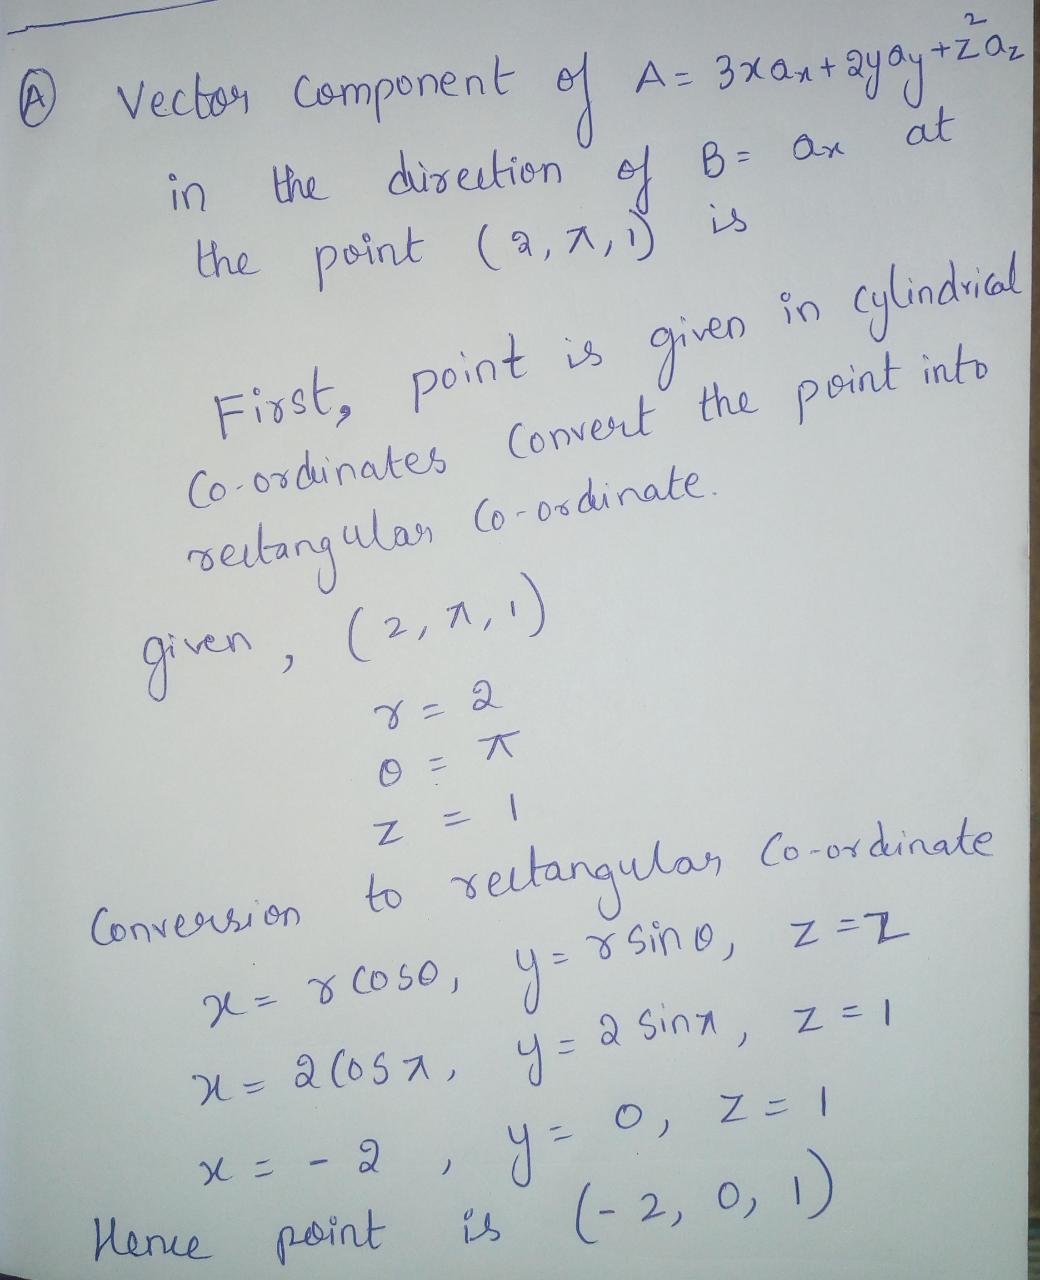 (A) Vector Component of A = 3xax + 2yay + z²az
in the direction of B = ax at
the point (2, π, 1) is
First, point is given in cylindrical
Co-ordinates Convert the point into
rectangular Co-ordinate.
given, (2, π, 1)
r = 2
θ = π
z = 1
Conversion to rectangular Co-ordinate
x = r cosθ, y = r sinθ, z = z
x = 2 cosπ, y = 2 sinπ, z = 1
x = -2, y = 0, z = 1
Hence point is (-2, 0, 1)